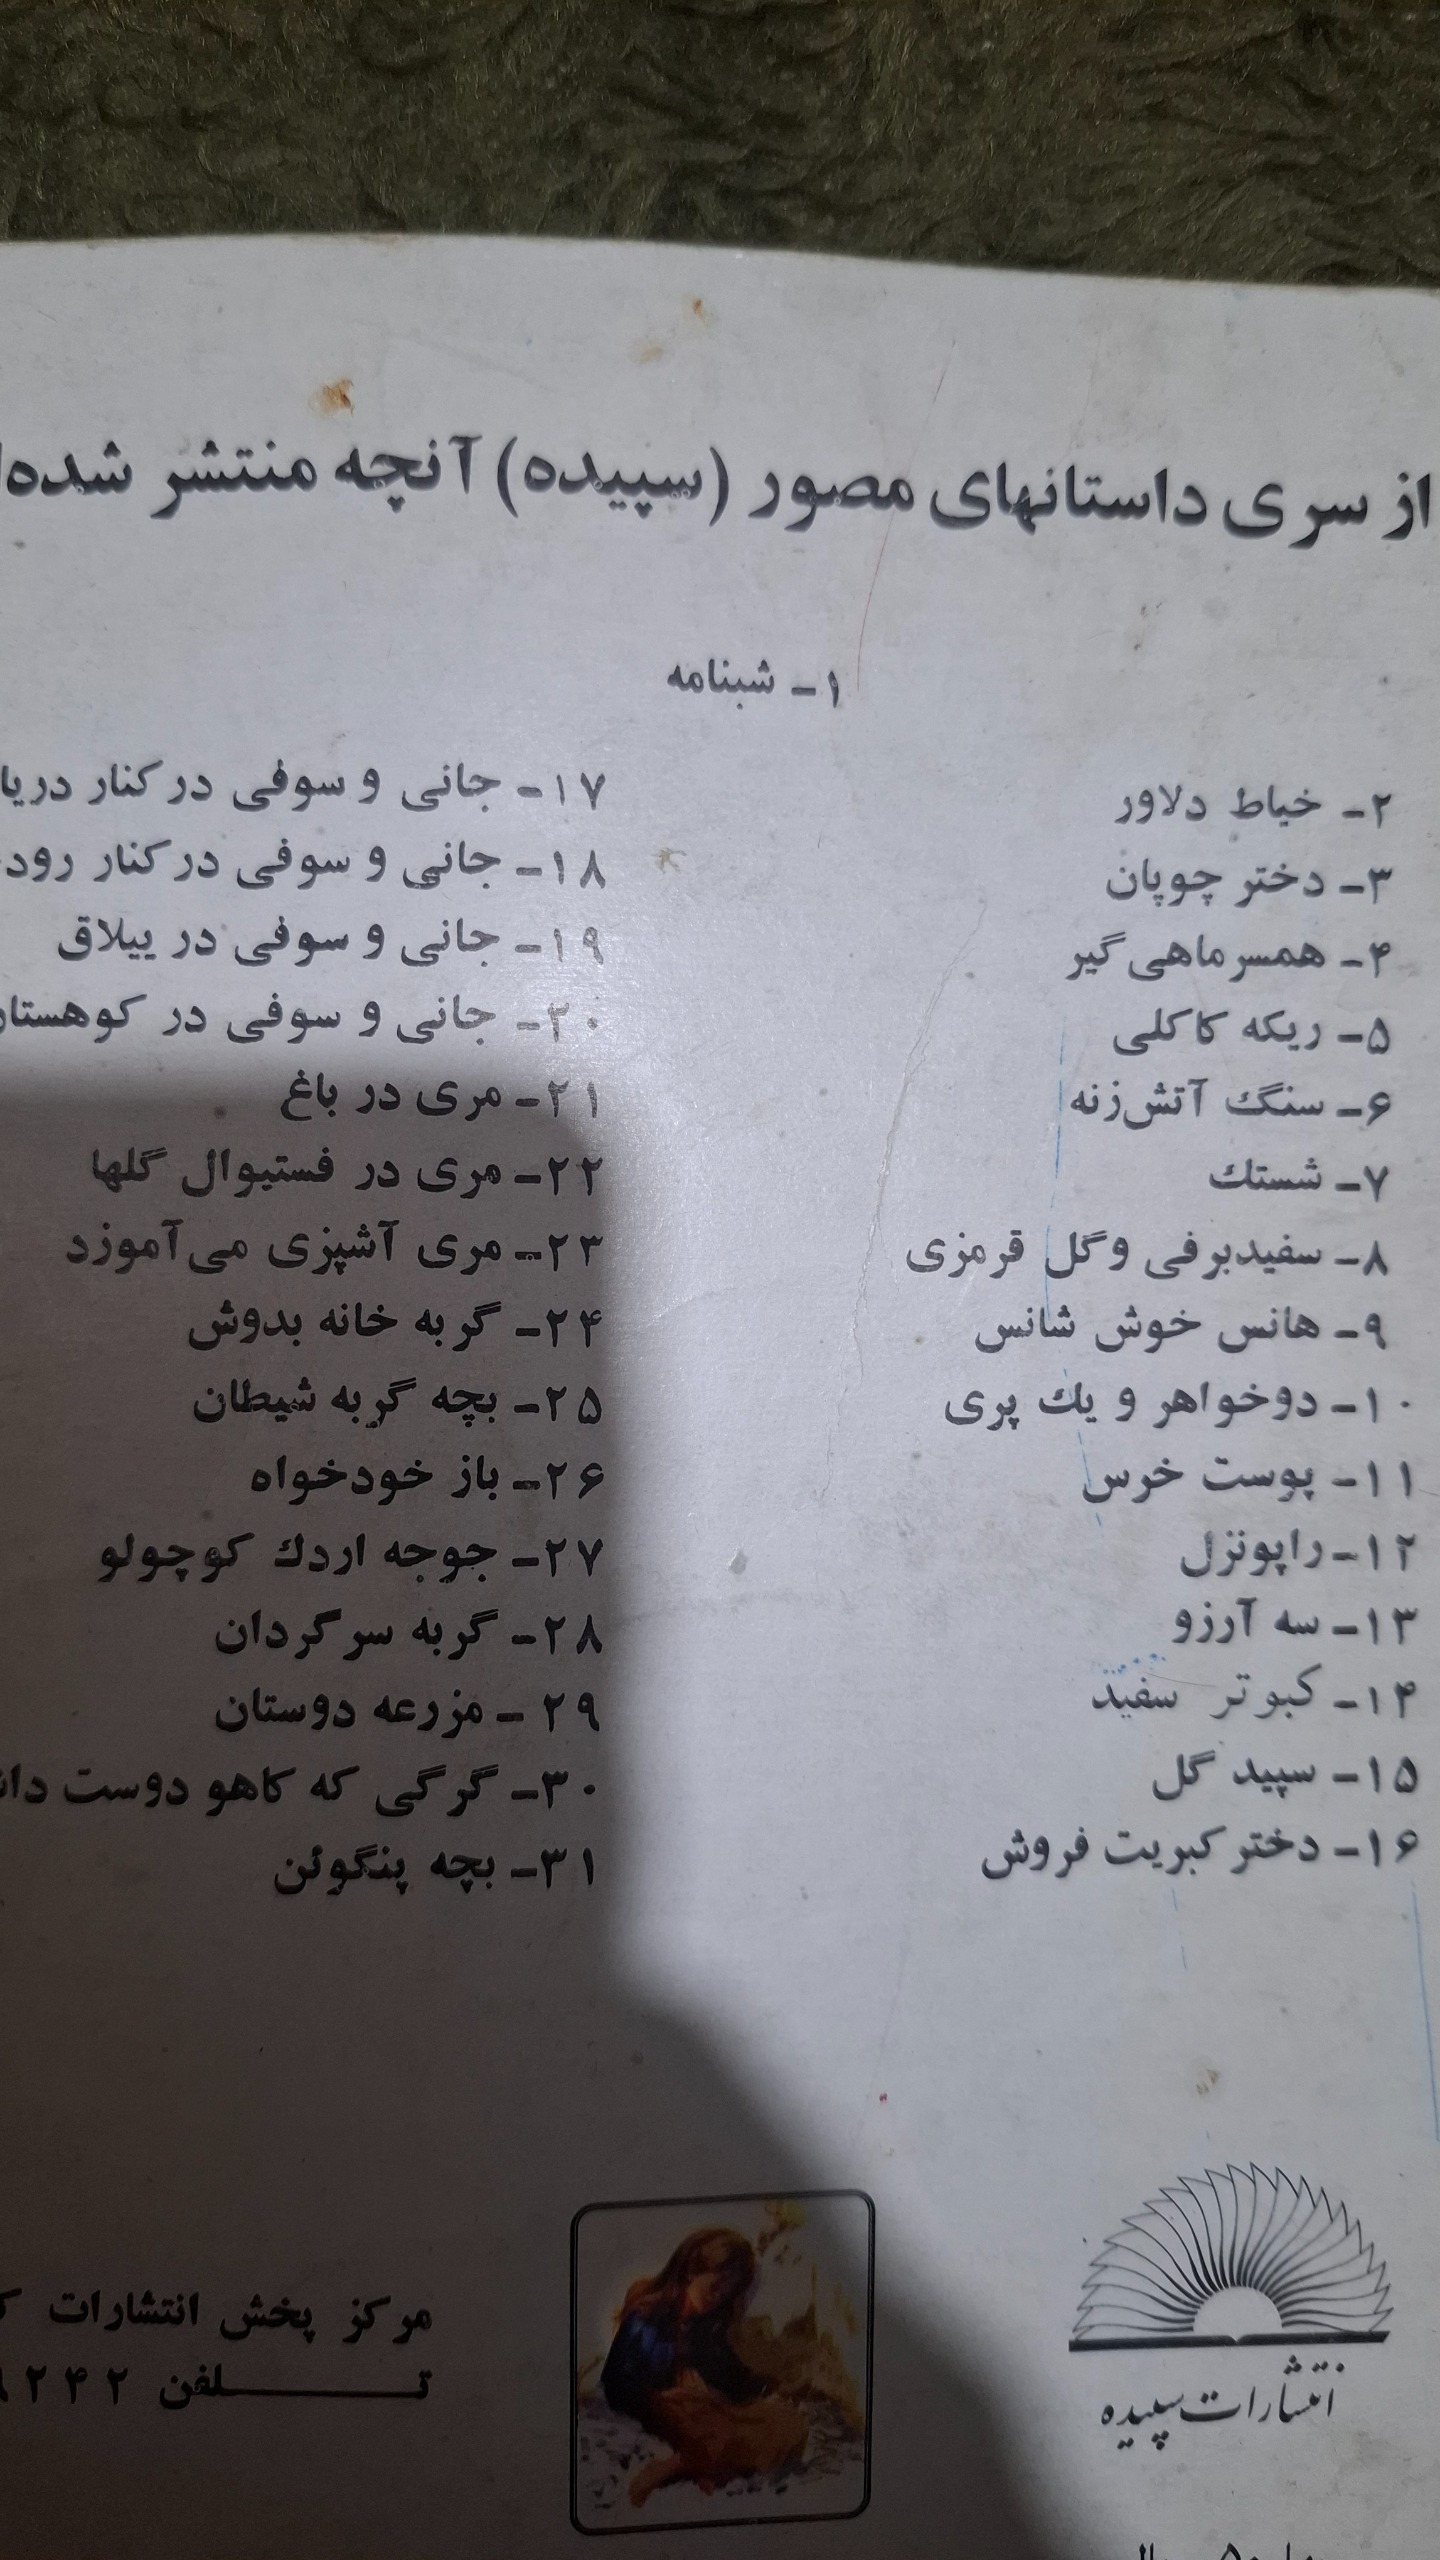 از سری داستانهای مصور (سپیده) آنچه منتشر شده
۱- شبنامه
۲- خیاط دلاور
۳- دختر چوپان
۴- همسر ماهی گیر
۵- ریکه کاکلی
۶- سنگ آتش‌زنه
۷- شستك
۸- سفیدبرفی و گل قرمزی
۹- هانس خوش شانس
۱۰- دوخواهر و یك پری
۱۱- پوست خرس
۱۲- راپونزل
۱۳- سه آرزو
۱۴- کبوتر سفید
۱۵- سپید گل
۱۶- دختر کبریت فروش
۱۷- جانی و سوفی در کنار دریا
۱۸- جانی و سوفی در کنار رود
۱۹- جانی و سوفی در ییلاق
۲۰- جانی و سوفی در
۲۱- مری در باغ
۲۲- مری در فستیوال گلها
۲۳- مری آشپزی می‌آموزد
۲۴- گربه خانه بدوش
۲۵- بچه گربه شیطان
۲۶- باز خودخواه
۲۷- جوجه اردك کوچولو
۲۸- گربه سرگردان
۲۹- مزرعه دوستان
۳۰- گرگی که کاهو دوست
۳۱- بچه پنگوئن
انتشارات سپیده
مرکز پخش انتشارات
تلفن